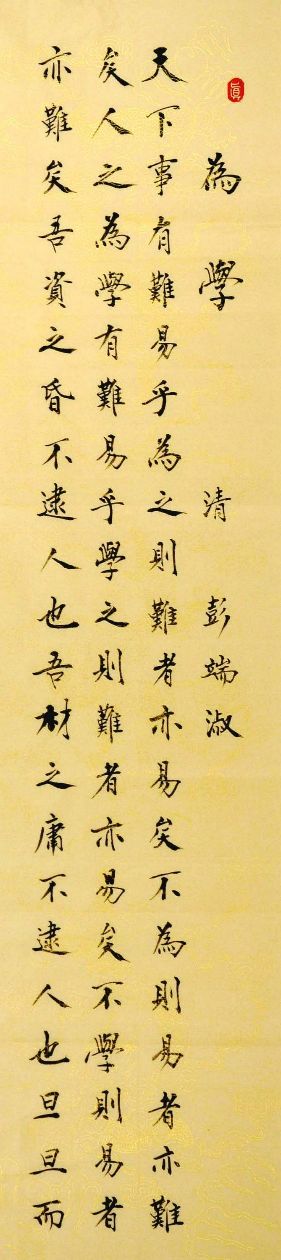 為學 清 彭端淑
天下事有難易乎為之則難者亦易矣不為則易者亦難
矣人之為學有難易乎學之則難者亦易矣不學則易者
亦難矣吾資之昏不逮人也吾材之庸不逮人也旦旦而